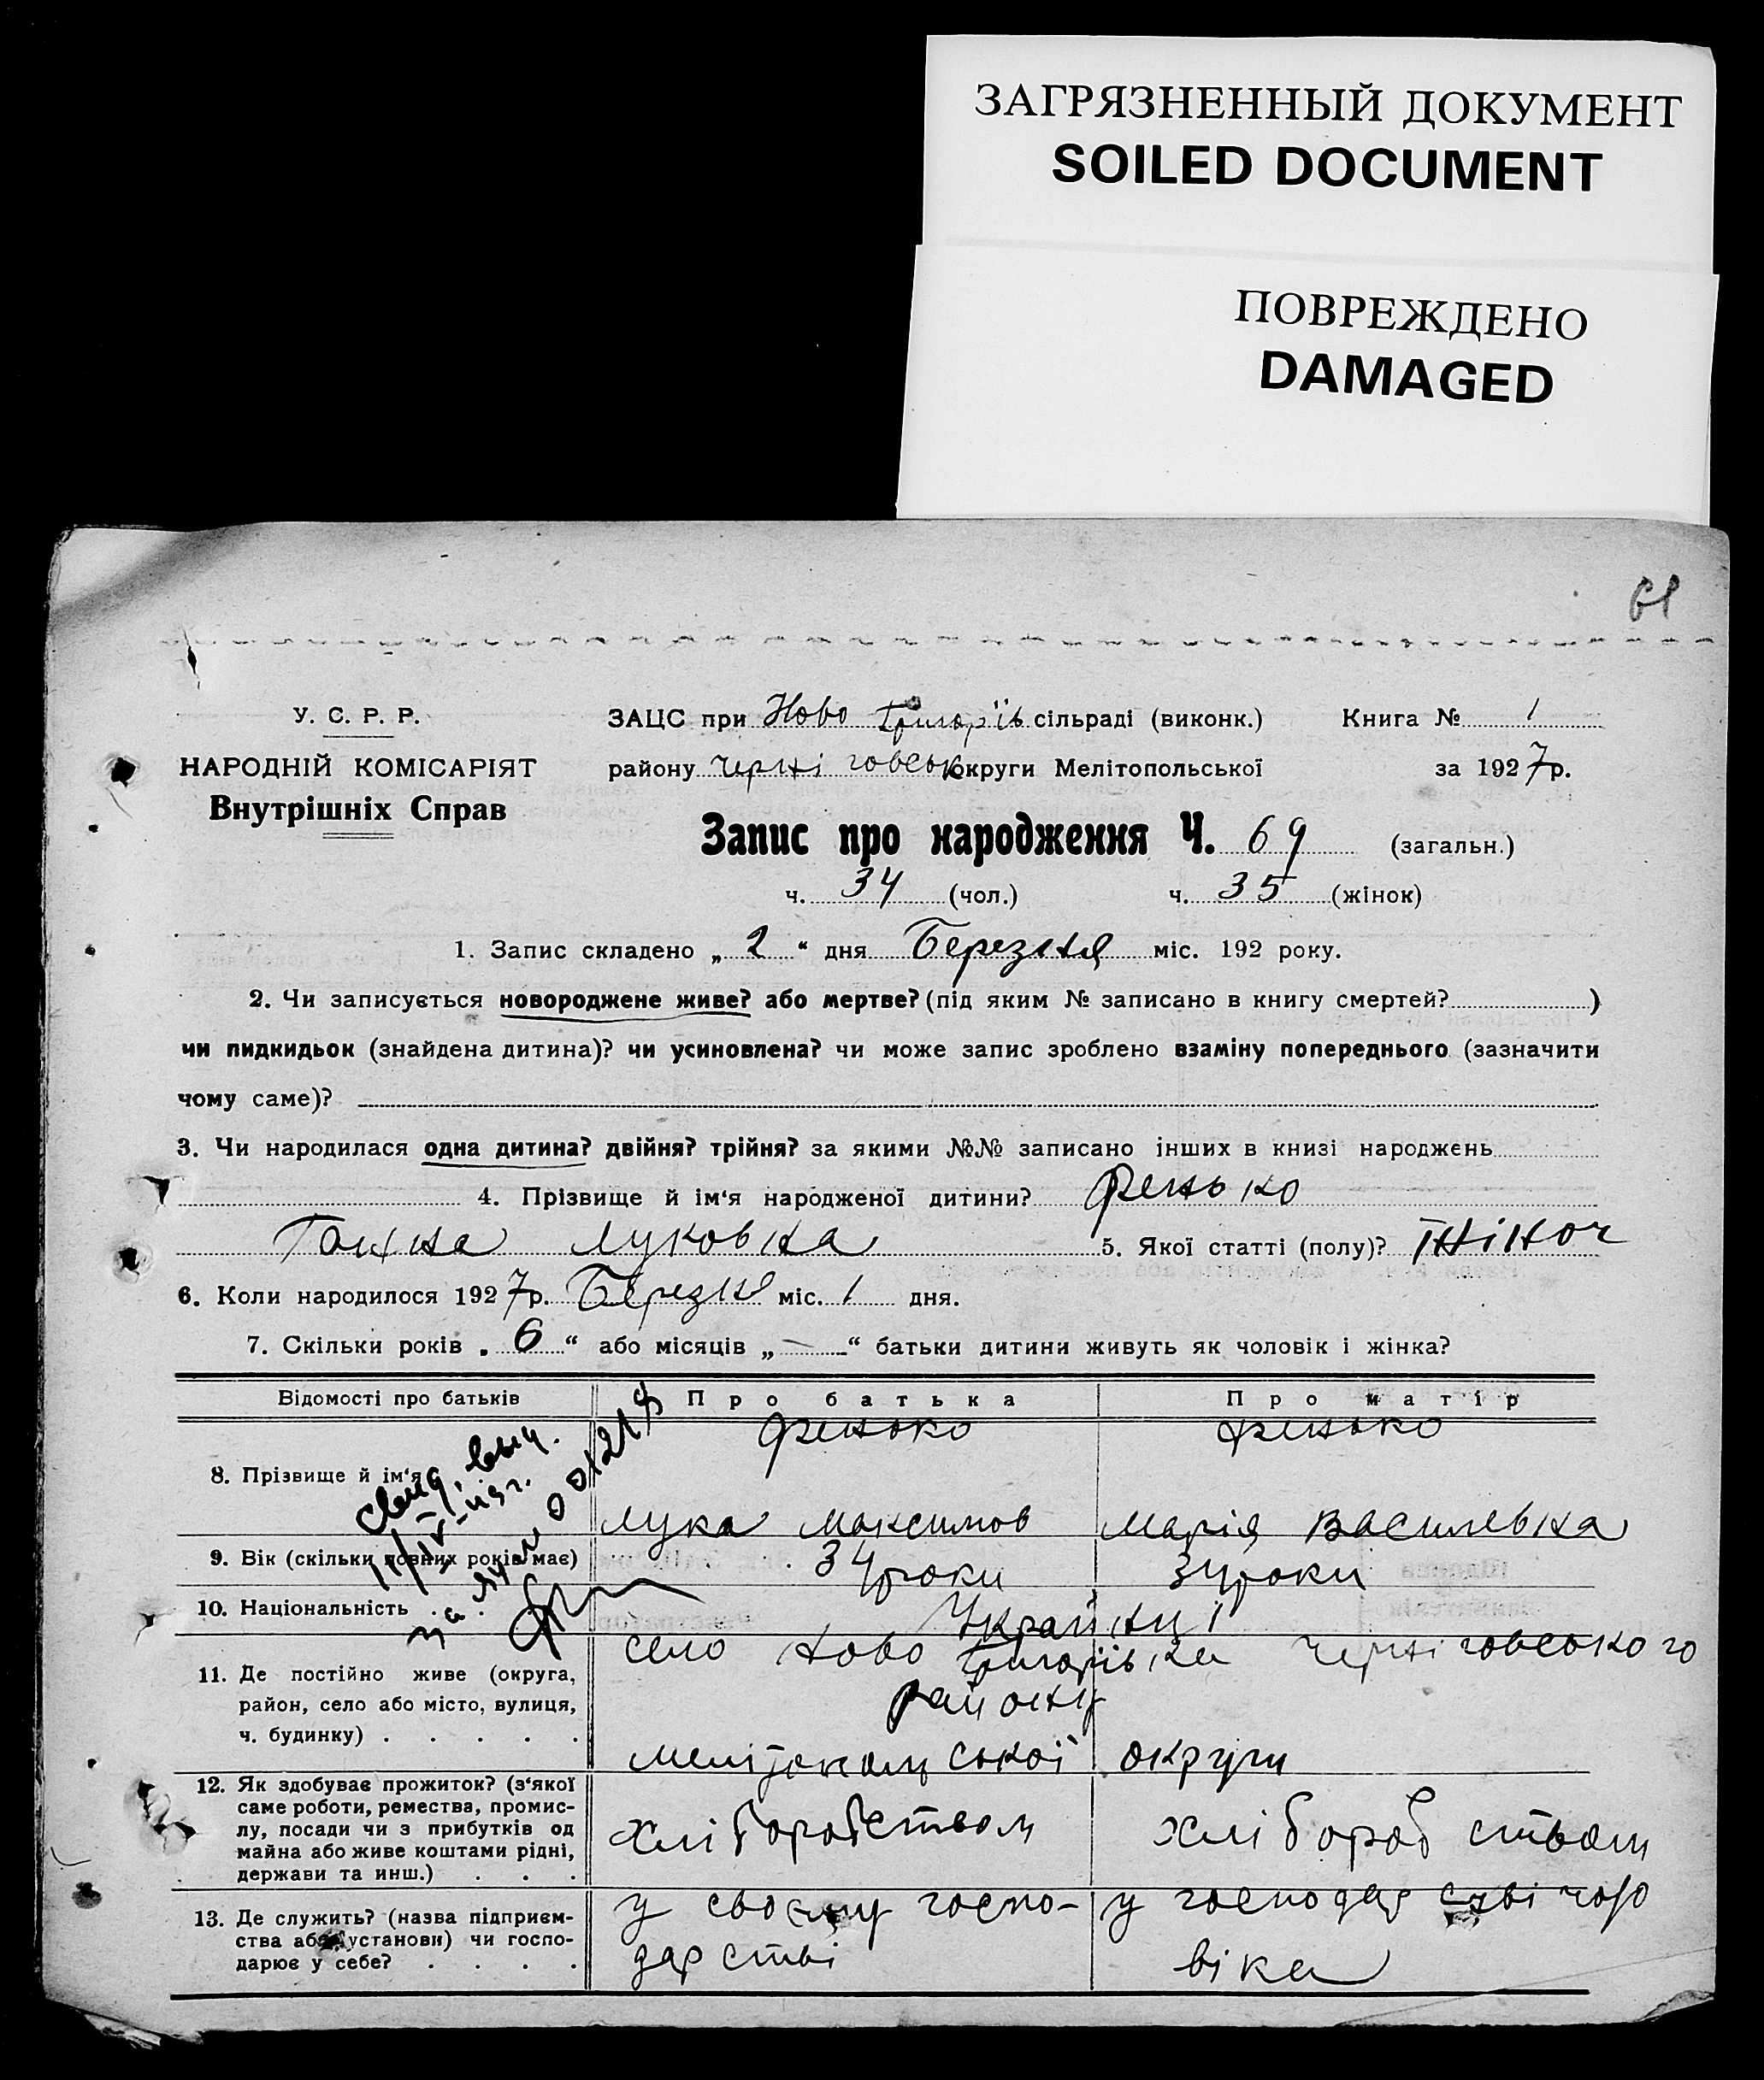 ЗАГРЯЗНЕННЫЙ ДОКУМЕНТ
SOILED DOCUMENT
ПОВРЕЖДЕНО
DAMAGED
У. С. Р. Р.
НАРОДНІЙ КОМІСАРІЯТ
Внутрішніх Справ
ЗАЦС при Ново Григорїв сільраді (виконк.) Книга № 1
району Черні говськ округи Мелітопольської за 1927р.
Запис про народження Ч. 69 (загальн.)
ч. 34 (чол.) ч. 35 (жінок)
1. Запис складено „ 2 “ дня Березня міс. 192 року.
2. Чи записується новороджене живе? або мертве? (під яким № записано в книгу смертей? )
чи пидкидьок (знайдена дитина)? чи усиновлена? чи може запис зроблено взаміну попереднього (зазначити
чому саме)?
3. Чи народилася одна дитина? двійня? трійня? за якими №№ записано інших в книзі народжень
4. Прізвище й ім‘я народженої дитини? Фенько
Ганна Луковна 5. Якої статті (полу)? Жіноч
6. Коли народилося 1927р. Березня міс. 1 дня.
7. Скільки років „ 6 “ або місяців „ — “ батьки дитини живуть як чоловік і жінка?
Відомості про батьків Про батька Про матір
8. Прізвище й ім‘я Фенько Фенько
Лука Максимов Марія Василевна
9. Вік (скільки повних років має) 34 роки 34 роки
10. Національність . . Українці
11. Де постійно живе (округа,
район, село або місто, вулиця,
ч. будинку) . . . . .
село Ново Григорівка Черніговського
району
Мелітопольської округи
12. Як здобуває прожиток? (з‘якої
саме роботи, ремества, промис-
лу, посади чи з прибутків од
майна або живе коштами рідні,
держави та инш.) . . .
Хліборобством Хлібороб ством
13. Де служить? (назва підприєм-
ства або установи) чи госпо-
дарює у себе? . . . .
у своєму госпо- у господар стві чоло
дарстві віка